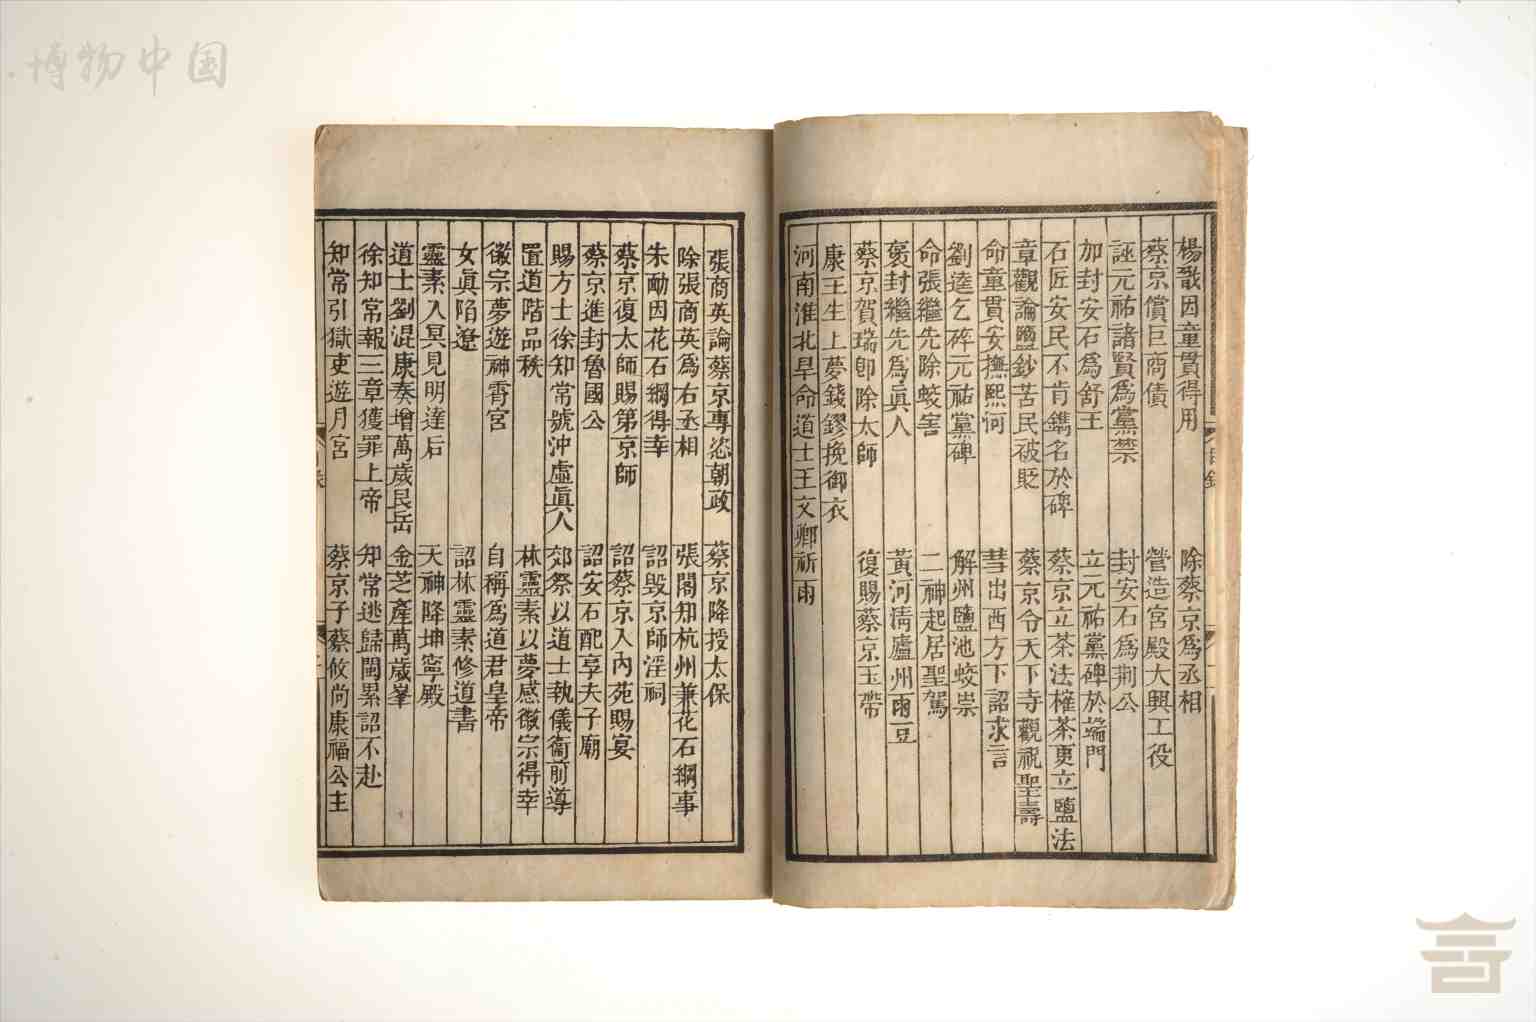 博物中国
楊戩因童貫得用 除蔡京爲丞相
蔡京償巨商債 營造宮殿大興工役
誣元祐諸賢爲黨禁 封安石爲荆公
加封安石爲舒王 立元祐黨碑於端門
石匠安民不肯鐫名於碑 蔡京立茶法榷茶更立鹽法
章觀論鹽鈔苦民被貶 蔡京令天下寺觀祝聖壽
命童貫安撫熙河 彗出西方下詔求言
劉逵乞碎元祐黨碑 解州鹽池蛟祟
命張繼先除蛟害 二神起居聖駕
褒封繼先爲真人 黃河清廬州雨豆
蔡京賀瑞卽除太師 復賜蔡京玉帶
康王生上夢錢鏐挽御衣
河南淮北旱命道士王文卿祈雨
張商英論蔡京專恣朝政 蔡京降授太保
除張商英爲右丞相 張閣知杭州兼花石綱事
朱勔因花石綱得幸 詔毁京師淫祠
蔡京復太師賜第京師 詔蔡京入內苑賜宴
蔡京進封魯國公 詔安石配享夫子廟
賜方士徐知常號沖虛眞人 郊祭以道士執儀衞前導
置道階品秩 林靈素以夢感徽宗得幸
徽宗夢遊神霄宮 自稱爲道君皇帝
女眞陷遼 詔林靈素修道書
靈素入冥見明達后 天神降坤寧殿
道士劉混康奏增萬歲艮岳 金芝產萬歲峯
徐知常報三章獲罪上帝 知常逃歸閩累詔不赴
知常引獄吏遊月宮 蔡京子蔡攸尚康福公主